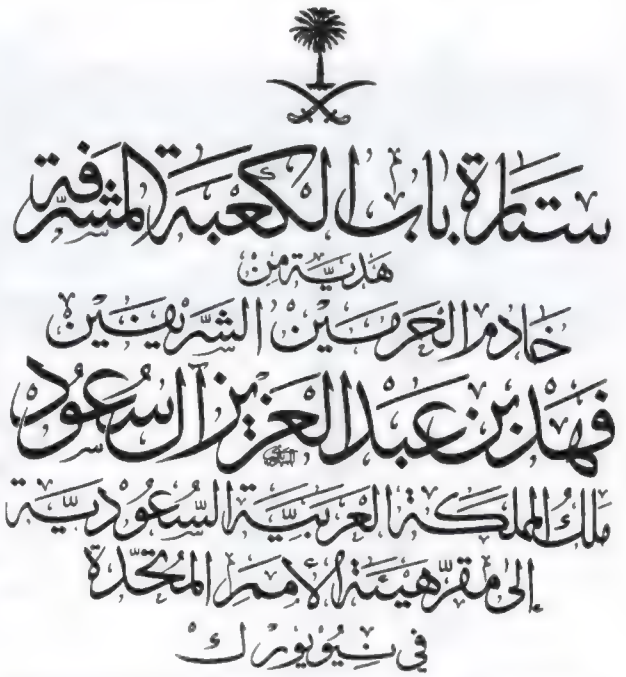 ستارة باب الكعبة المشرفة
هدية من
خادم الحرمين الشريفين
فهد بن عبد العزيز آل سعود
ملك المملكة العربية السعودية
إلى مقر هيئة الأمم المتحدة
في نيويورك